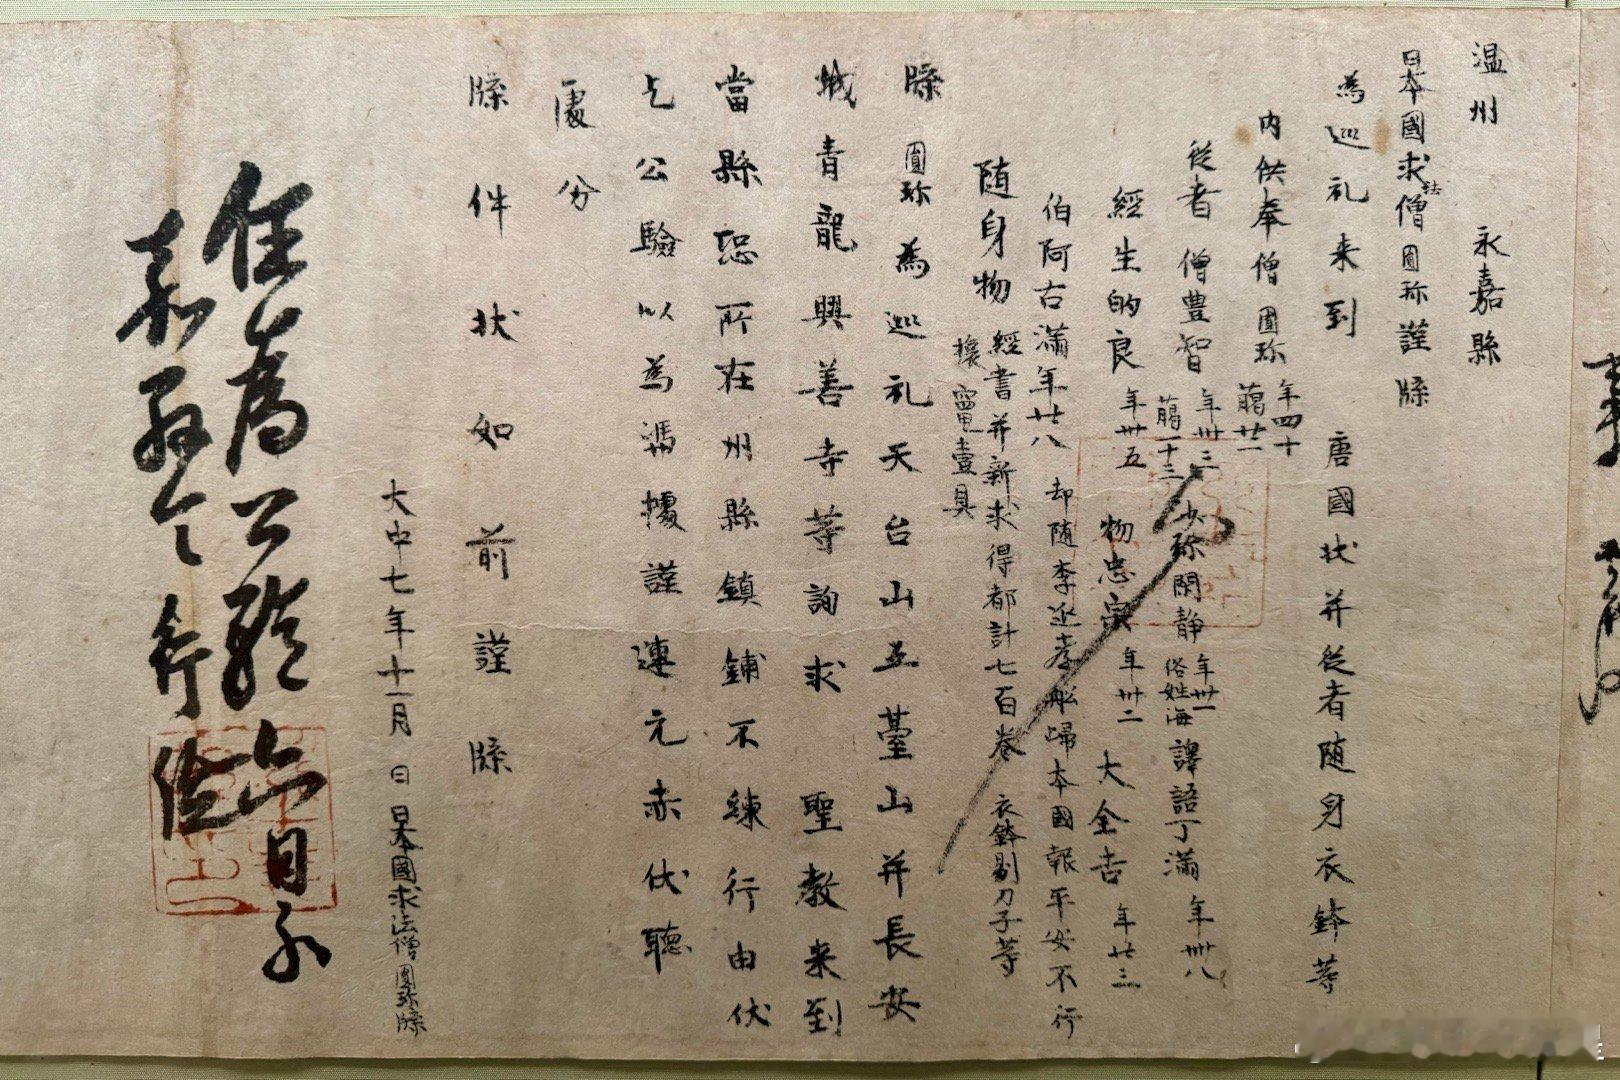 温州 永嘉縣
日本國求法僧圓珎謹牒
為巡礼来到 唐國状并従者随身衣鉢等
内供奉僧圓珎 年四十 﨟廿一
従者 僧豊智 年卅三 﨟一十三 沙弥閑静 年卅一 俗姓海 譯語丁滿 年卌八
經生的良 年卅五 物忠宗 年卅二 大全吉 年廿三
伯阿古滿年廿八 却随李延孝舩歸本國報平安不行
随身物 經書并新求得都計七百卷 衣鉢剔刀子等
牒圓珎為巡礼天台山五臺山并長安
城青龍興善寺等詢求 聖教来到
當縣恐所在州縣鎮鋪不練行由伏
乞公驗以為憑據謹連元赤伏聽
處分
牒件状如前謹牒
大中七年十一月 日 日本國求法僧圓珎牒
任為公驗六日永
嘉縣令